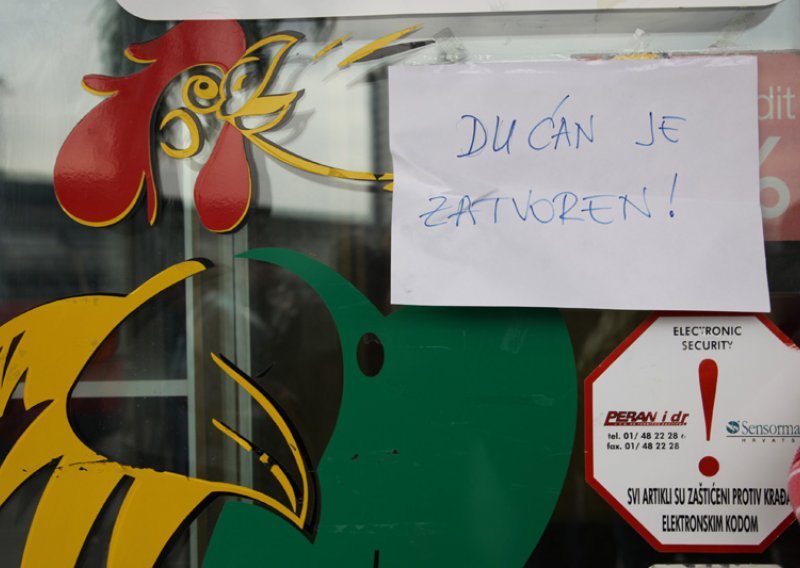 DUĆAN JE
ZATVOREN!
dit
%
ELECTRONIC
SECURITY
PERAN i dr
Sensorma
HRVATS
tel. 01/ 48 22 28
fax. 01/ 48 22 28
SVI ARTIKLI SU ZAŠTIĆENI PROTIV KRAĐA
ELEKTRONSKIM KODOM